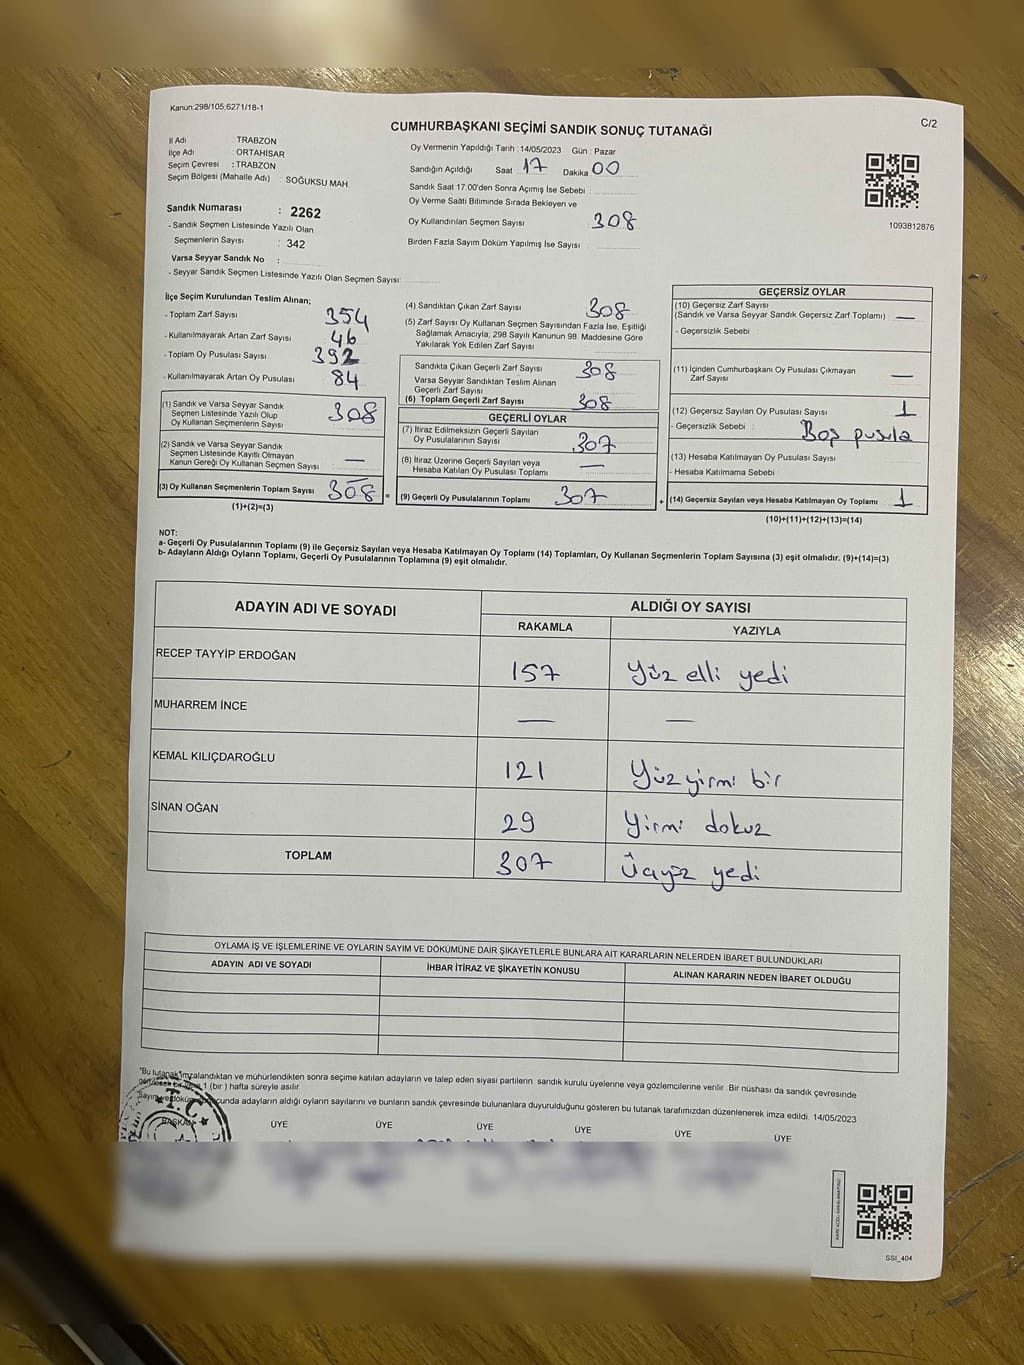 Kanun:298/105,6271/18-1
C/2
CUMHURBAŞKANI SEÇİMİ SANDIK SONUÇ TUTANAĞI
İl Adı : TRABZON
İlçe Adı : ORTAHİSAR
Seçim Çevresi : TRABZON
Seçim Bölgesi (Mahalle Adı) : SOĞUKSU MAH.
Sandık Numarası : 2262
- Sandık Seçmen Listesinde Yazılı Olan
Seçmenlerin Sayısı : 342
Varsa Seyyar Sandık No :
- Seyyar Sandık Seçmen Listesinde Yazılı Olan Seçmen Sayısı:
Oy Vermenin Yapıldığı Tarih :14/05/2023 Gün : Pazar
Sandığın Açıldığı Saat 17 Dakika 00
Sandık Saat 17:00'den Sonra Açımış İse Sebebi :
Oy Verme Saati Bitiminde Sırada Bekleyen ve
Oy Kullandırılan Seçmen Sayısı 308
Birden Fazla Sayım Döküm Yapılmış İse Sayısı :
1093812876
İlçe Seçim Kurulundan Teslim Alınan;
- Toplam Zarf Sayısı 354
- Kullanılmayarak Artan Zarf Sayısı 46
- Toplam Oy Pusulası Sayısı 392
- Kullanılmayarak Artan Oy Pusulası 84
(1) Sandık ve Varsa Seyyar Sandık
Seçmen Listesinde Yazılı Olup
Oy Kullanan Seçmenlerin Sayısı 308
(2) Sandık ve Varsa Seyyar Sandık
Seçmen Listesinde Kayıtlı Olmayan
Kanun Gereği Oy Kullanan Seçmen Sayısı —
(3) Oy Kullanan Seçmenlerin Toplam Sayısı 308 =
(1)+(2)=(3)
(4) Sandıktan Çıkan Zarf Sayısı 308
(5) Zarf Sayısı Oy Kullanan Seçmen Sayısından Fazla İse, Eşitliği
Sağlamak Amacıyla; 298 Sayılı Kanunun 98. Maddesine Göre
Yakılarak Yok Edilen Zarf Sayısı
Sandıkta Çıkan Geçerli Zarf Sayısı 308
Varsa Seyyar Sandıktan Teslim Alınan
Geçerli Zarf Sayısı
(6) Toplam Geçerli Zarf Sayısı 308
GEÇERLİ OYLAR
(7) İtiraz Edilmeksizin Geçerli Sayılan
Oy Pusulalarının Sayısı 307
(8) İtiraz Üzerine Geçerli Sayılan veya
Hesaba Katılan Oy Pusulası Toplamı —
(9) Geçerli Oy Pusulalarının Toplamı 307 +
GEÇERSİZ OYLAR
(10) Geçersiz Zarf Sayısı
(Sandık ve Varsa Seyyar Sandık Geçersiz Zarf Toplamı) —
- Geçersizlik Sebebi :
(11) İçinden Cumhurbaşkanı Oy Pusulası Çıkmayan
Zarf Sayısı —
(12) Geçersiz Sayılan Oy Pusulası Sayısı 1
- Geçersizlik Sebebi : Boş pusula
(13) Hesaba Katılmayan Oy Pusulası Sayısı
- Hesaba Katılmama Sebebi :
(14) Geçersiz Sayılan veya Hesaba Katılmayan Oy Toplamı 1
(10)+(11)+(12)+(13)=(14)
NOT:
a- Geçerli Oy Pusulalarının Toplamı (9) ile Geçersiz Sayılan veya Hesaba Katılmayan Oy Toplamı (14) Toplamları, Oy Kullanan Seçmenlerin Toplam Sayısına (3) eşit olmalıdır. (9)+(14)=(3)
b- Adayların Aldığı Oyların Toplamı, Geçerli Oy Pusulalarının Toplamına (9) eşit olmalıdır.
ADAYIN ADI VE SOYADI ALDIĞI OY SAYISI
RAKAMLA YAZIYLA
RECEP TAYYİP ERDOĞAN 157 Yüz elli yedi
MUHARREM İNCE — —
KEMAL KILIÇDAROĞLU 121 Yüz yirmi bir
SİNAN OĞAN 29 Yirmi dokuz
TOPLAM 307 Üçyüz yedi
OYLAMA İŞ VE İŞLEMLERİNE VE OYLARIN SAYIM VE DÖKÜMÜNE DAİR ŞİKAYETLERLE BUNLARA AİT KARARLARIN NELERDEN İBARET BULUNDUKLARI
ADAYIN ADI VE SOYADI İHBAR İTİRAZ VE ŞİKAYETİN KONUSU ALINAN KARARIN NEDEN İBARET OLDUĞU
"Bu tutanak imzalandıktan ve mühürlendikten sonra seçime katılan adayların ve talep eden siyasi partilerin sandık kurulu üyelerine veya gözlemcilerine verilir. Bir nüshası da sandık çevresinde
bir 1 (bir ) hafta süreyle asılır.
adayların aldığı oyların sayılarını ve bunların sandık çevresinde bulunanlara duyurulduğunu gösteren bu tutanak tarafımızdan düzenlenerek imza edildi. 14/05/2023
T.C.
BAŞKAN ÜYE ÜYE ÜYE ÜYE ÜYE ÜYE
SSI_404